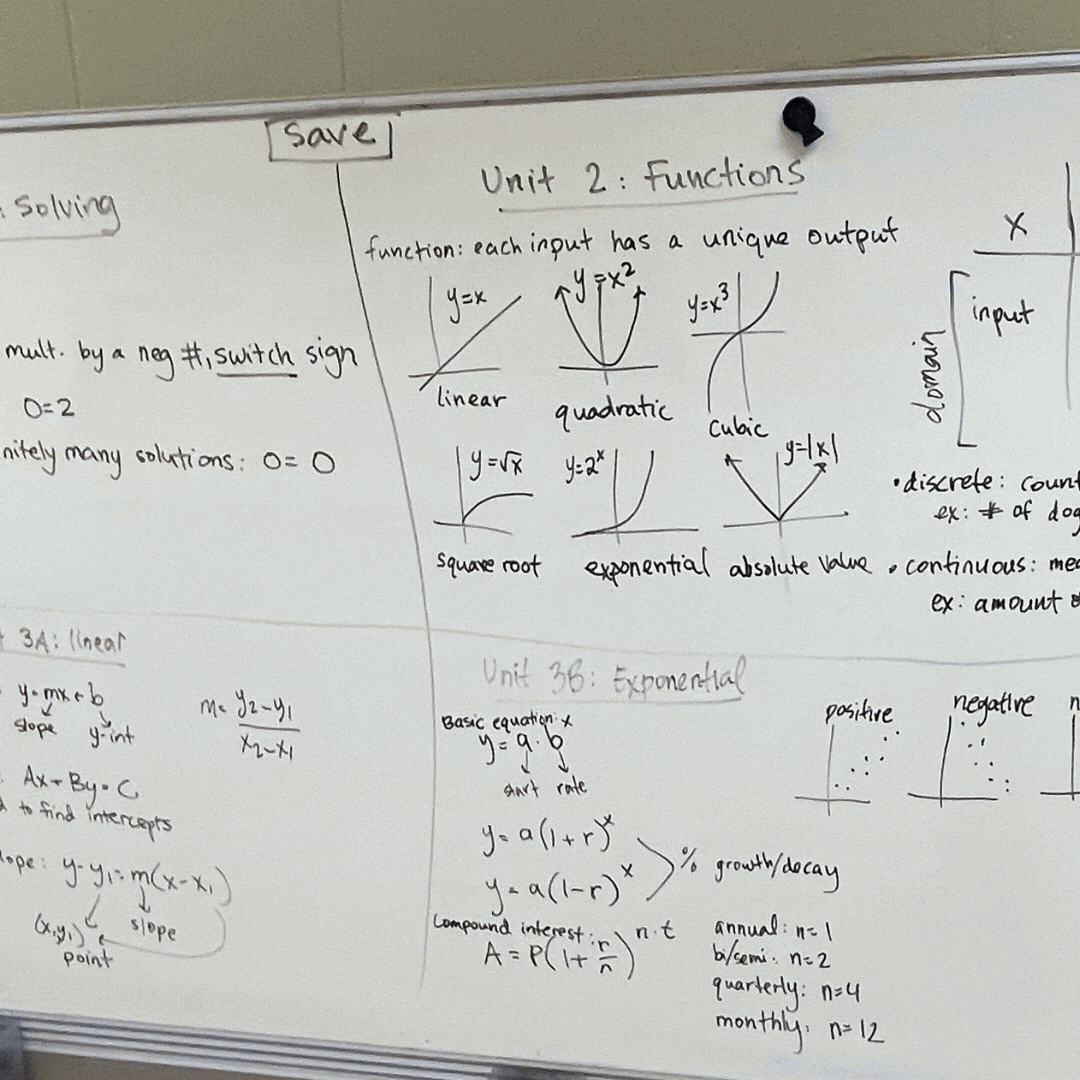 save
Solving
mult. by a neg #, switch sign
0=2
nitely many solutions: 0= 0
Unit 2: Functions
function: each input has a unique output
y=x
linear
y=x²
quadratic
y=x³
cubic
y=√x
square root
y=2ˣ
exponential
y=|x|
absolute value
x
domain
input
• discrete: count
ex: # of dog
• continuous: mea
ex: amount
3A: linear
y=mx+b
slope
y-int
m= y₂-y₁
x₂-x₁
Ax+By=C
to find intercepts
lope: y-y₁=m(x-x₁)
(x₁y₁)
slope
point
Unit 3B: Exponential
Basic equation:
y=a·bˣ
start rate
y=a(1+r)ˣ
y=a(1-r)ˣ
% growth/decay
Compound interest:
A=P(1+r/n)ⁿ·ᵗ
annual: n=1
bi/semi: n=2
quarterly: n=4
monthly: n=12
positive
negative
n